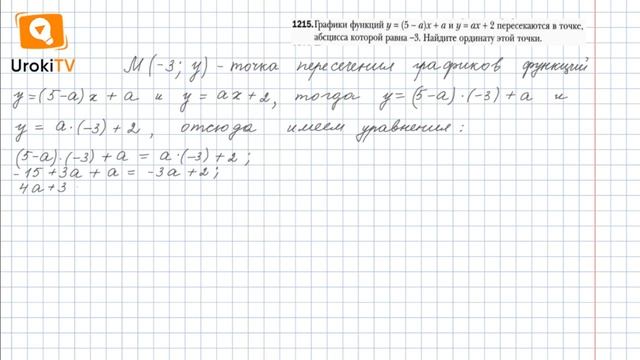 UrokiTV
1215. Графики функций y = (5 – a)x + a и y = ax + 2 пересекаются в точке,
абсцисса которой равна –3. Найдите ординату этой точки.
M(-3; y) - точка пересечения графиков функций
y=(5-a)x + a и y = ax+2, тогда y=(5-a)·(-3)+a и
y = a·(-3)+2, отсюда имеем уравнения:
(5-a)·(-3)+a = a·(-3)+2;
-15+3a+a = -3a+2;
4a+3